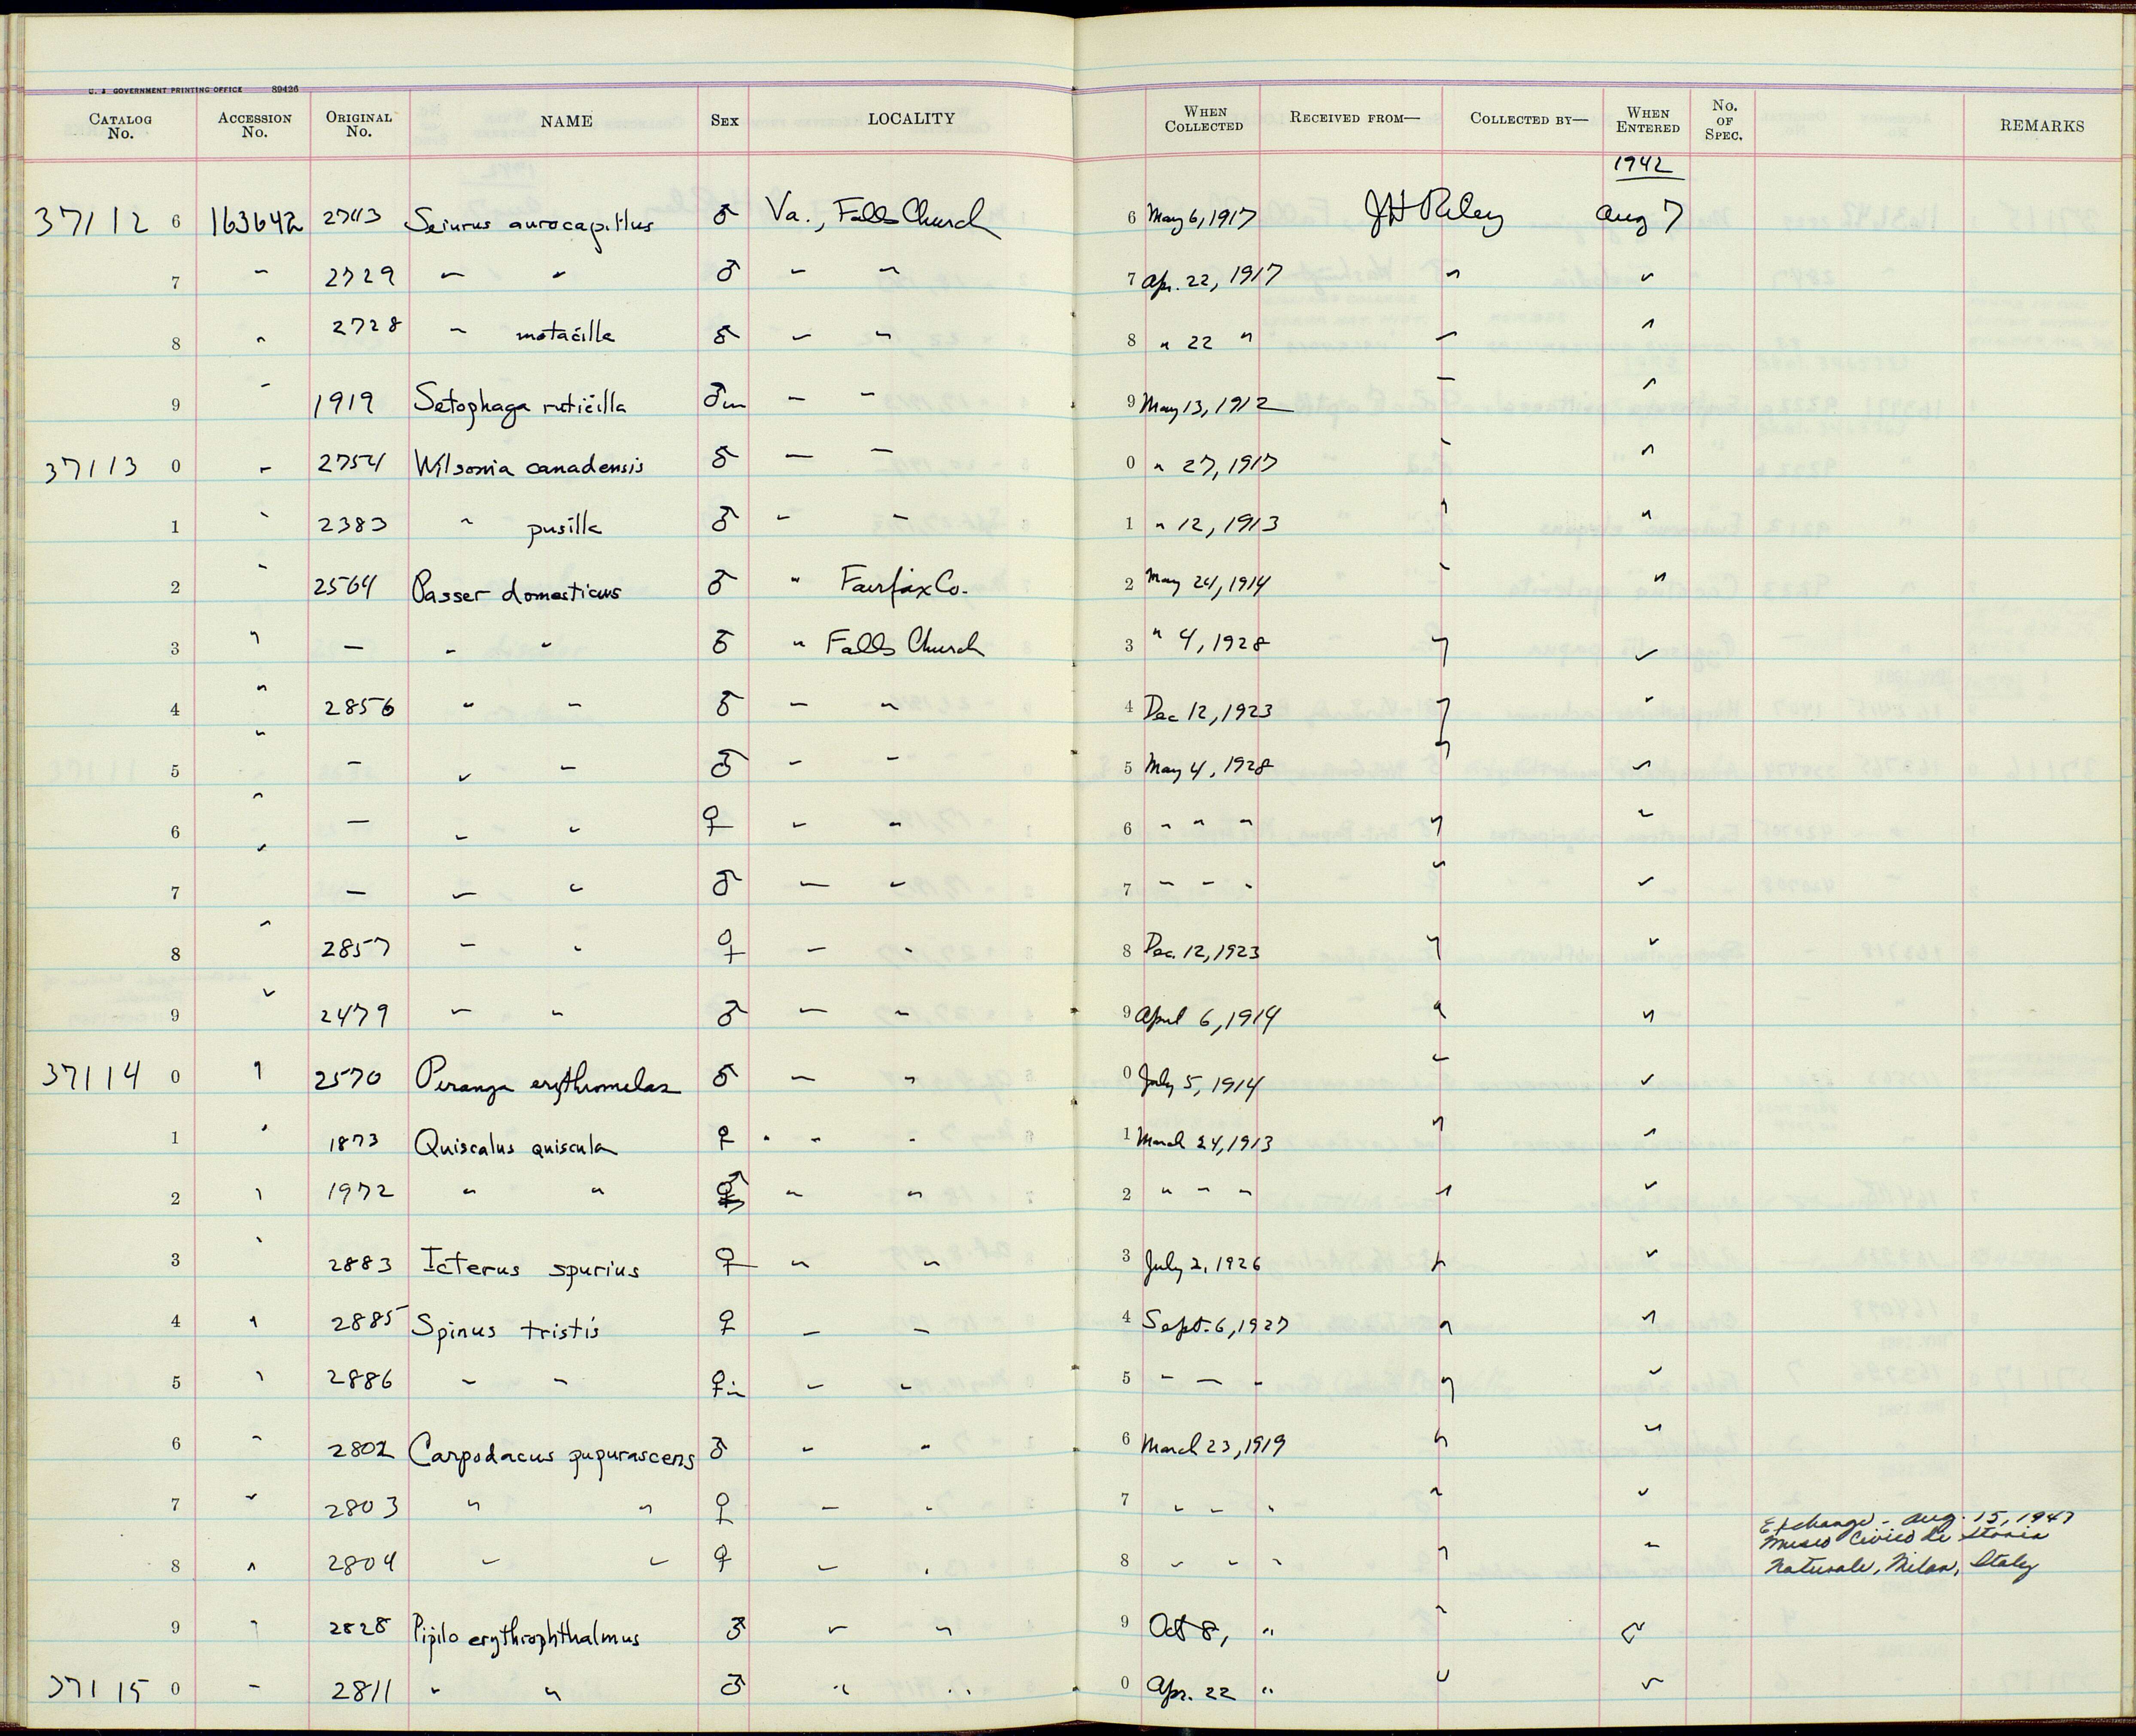 U. S. GOVERNMENT PRINTING OFFICE 89426
CATALOG No. ACCESSION No. ORIGINAL No. NAME SEX LOCALITY WHEN COLLECTED RECEIVED FROM— COLLECTED BY— WHEN ENTERED No. OF SPEC. REMARKS
1942
37112 6 163642 2743 Seiurus aurocapillus ♂ Va., Falls Church 6 May 6, 1917 JH Riley Aug 7
7 " 2729 " " ♂ " " 7 Apr. 22, 1917 " "
8 " 2728 " motacilla ♂ " " 8 " 22 " " "
9 " 1919 Setophaga ruticilla ♂ im " " 9 May 13, 1912 " "
37113 0 " 2754 Wilsonia canadensis ♂ " " 0 " 27, 1917 " "
1 " 2383 " pusilla ♂ " " 1 " 12, 1913 " "
2 " 2564 Passer domesticus ♂ " Fairfax Co. 2 May 24, 1914 " "
3 " — " " ♂ " Falls Church 3 " 4, 1928 " "
4 " 2856 " " ♂ " " 4 Dec 12, 1923 " "
5 " — " " ♂ " " 5 May 4, 1928 " "
6 " — " " ♀ " " 6 " " " " "
7 " — " " ♂ " " 7 " " " " "
8 " 2857 " " ♀ " " 8 Dec. 12, 1923 " "
9 " 2479 " " ♂ " " 9 April 6, 1914 " "
37114 0 " 2570 Piranga erythromelas ♂ " " 0 July 5, 1914 " "
1 " 1873 Quiscalus quiscula ♀ " " 1 March 24, 1913 " "
2 " 1972 " " ♂ " " 2 " " " " "
3 " 2883 Icterus spurius ♀ " " 3 July 2, 1926 " "
4 " 2885 Spinus tristis ♀ " " 4 Sept. 6, 1927 " "
5 " 2886 " " ♀ im " " 5 " " " " "
6 " 2802 Carpodacus pupurascens ♂ " " 6 March 23, 1919 " "
7 " 2803 " " ♀ " " 7 " " " " "
Exchange - Aug. 15, 1947
Museo Civico di Storia
8 " 2804 " " ♀ " " 8 " " " " " Naturale, Milan, Italy
9 " 2828 Pipilo erythrophthalmus ♂ " " 9 Oct 8, " " "
37115 0 " 2811 " " ♂ " " 0 Apr. 22 " " "